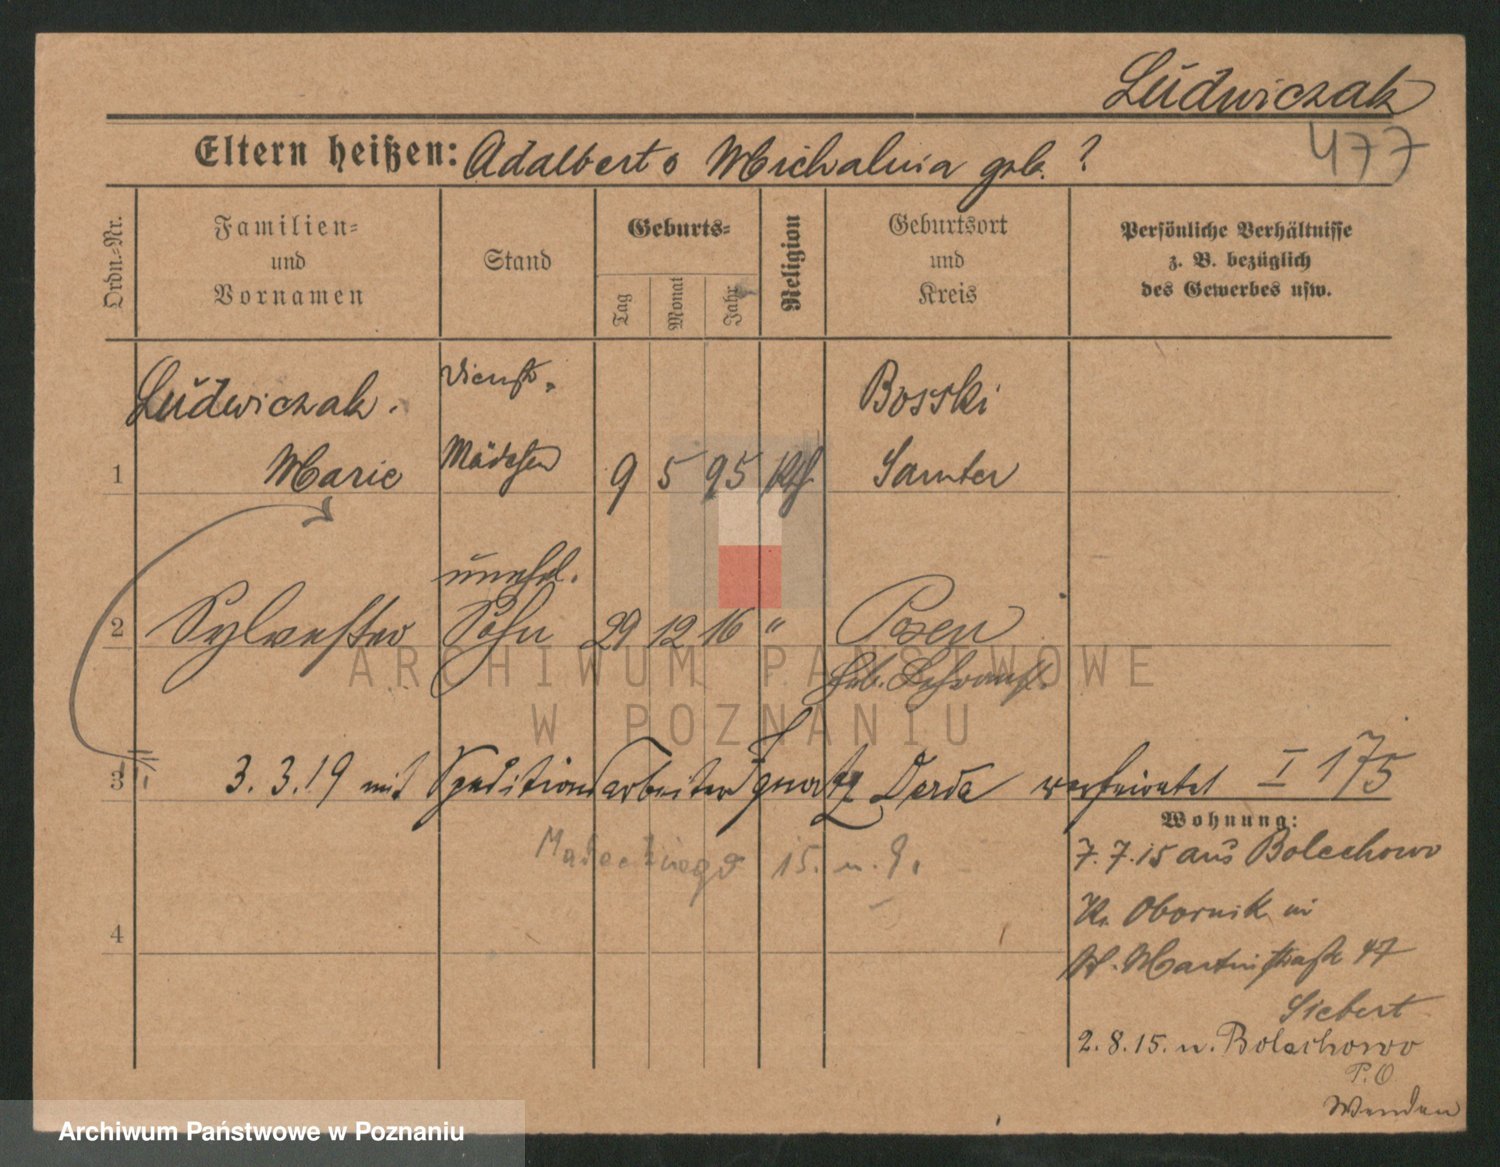 Ludwiczak
477
Eltern heißen: Adalbert o Michalina geb. ?
Ordn.-Nr.
Familien-
und
Vornamen
Stand
Geburts-
Tag
Monat
Jahr
Religion
Geburtsort
und
Kreis
Persönliche Verhältnisse
z. B. bezüglich
des Gewerbes usw.
Ludwiczak. Dienst- Bosski
1 Marie Mädchen 9 5 95 kth. Samter
unehel.
2 Sylvester Sohn 29 12 16 " Posen
ARCHIWUM PAŃSTWOWE
Heb. Lehranst.
W POZNANIU
3 3.3.19 mit Speditionsarbeiter Ignatz Derda verheiratet I 175
Wohnung:
15. n. 9.
7.7.15 aus Bolechowo
Kr. Obornik in
4
St. Martinstraße 47
Siebert
2.8.15. n. Bolechowo
P.O
Wenden
Archiwum Państwowe w Poznaniu